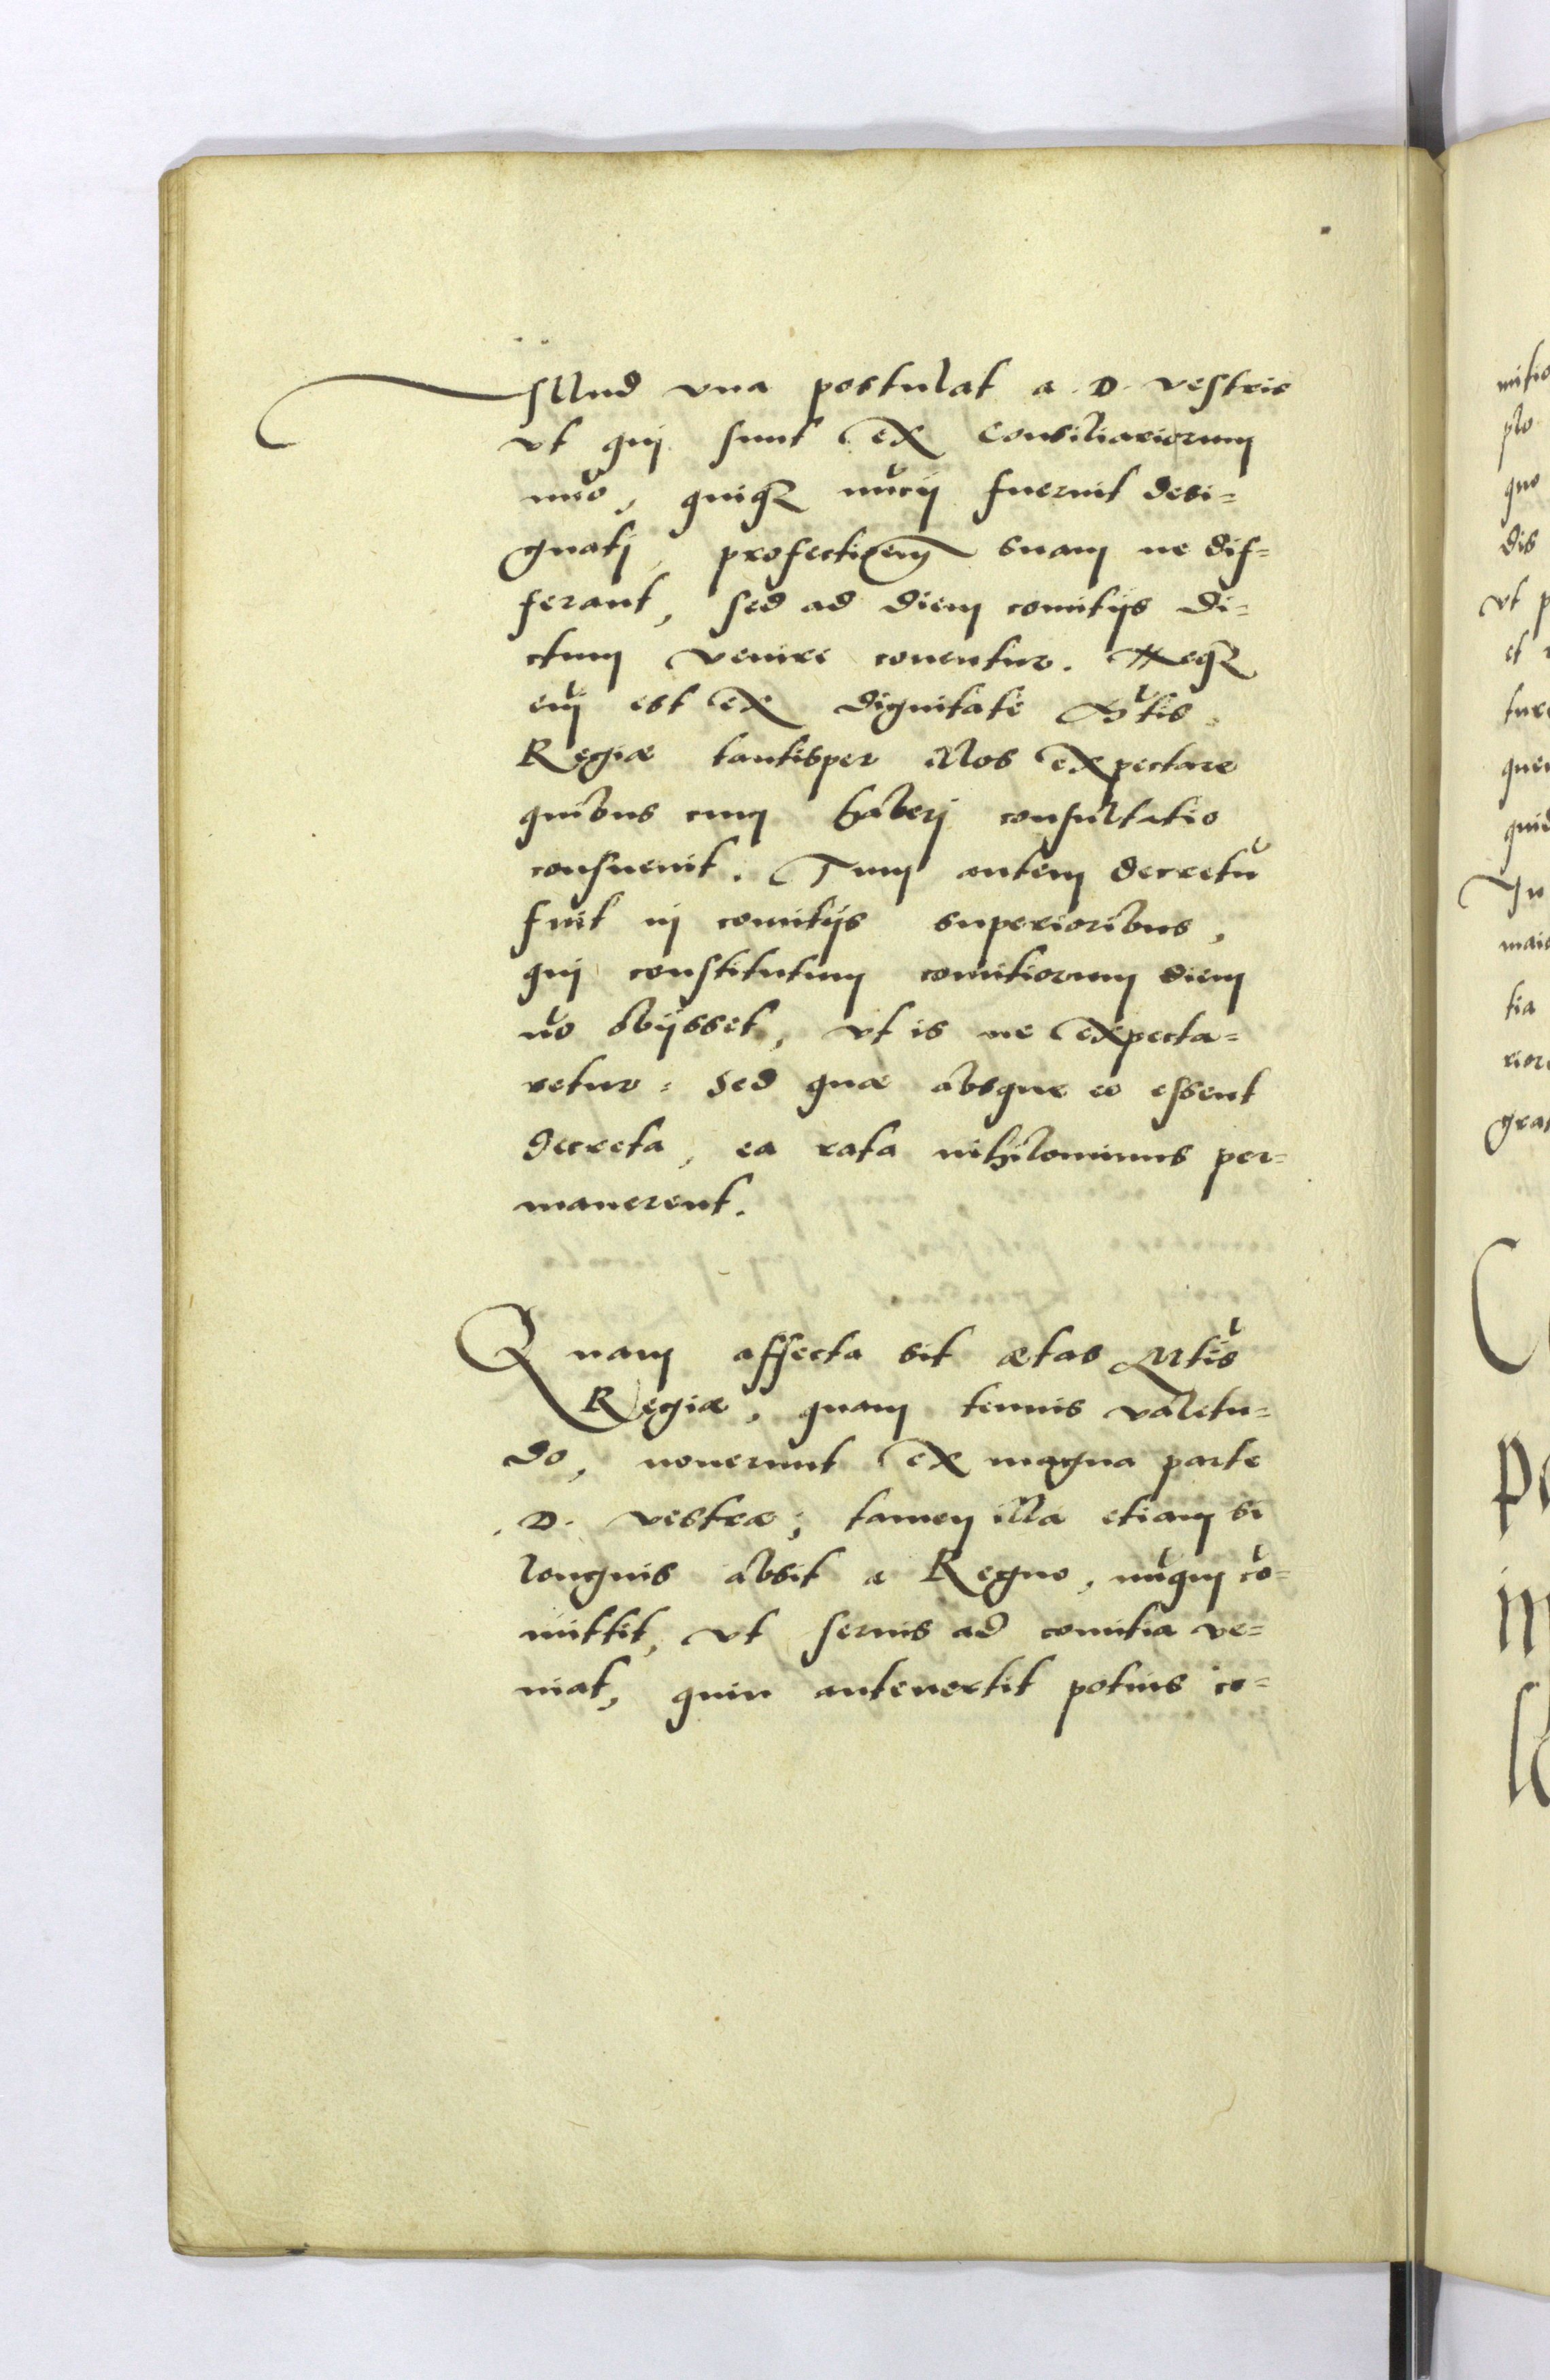 Illud una postulat a .D. vestris
vt qui sunt ex Consiliariorum
nũo, quiq₃ nũcij fuerint desi=
gnati, profectioem suam ne dif=
ferant, sed ad diem comitijs di=
ctum venire conentur. Neq₃
eni est ex dignitate Mtis
Regiæ tantisper illos expectare
quibus cum haberi consultatio
consueuit. Tum autem decretũ
fuit in comitijs superioribus,
qui constitutum comitiorum diem
nõ obijsset, vt is ne expecta=
retur: Sed quæ absque eo essent
decreta, ea rata nihilominus per=
manerent.
Quam affecta sit ætas Mtis
Regiæ, quam tenuis valetu=
do, nouerunt ex magna parte
.D. vestræ; tamen illa etiam si
longuis absit a Regno, nũqm cõ=
mittit, vt serius ad comitia ve=
niat, quin anteuertit potius co=
mitio
plo
quo
dis
vt p
et
ture
quem
quid
In
maio
tia
riore
grat